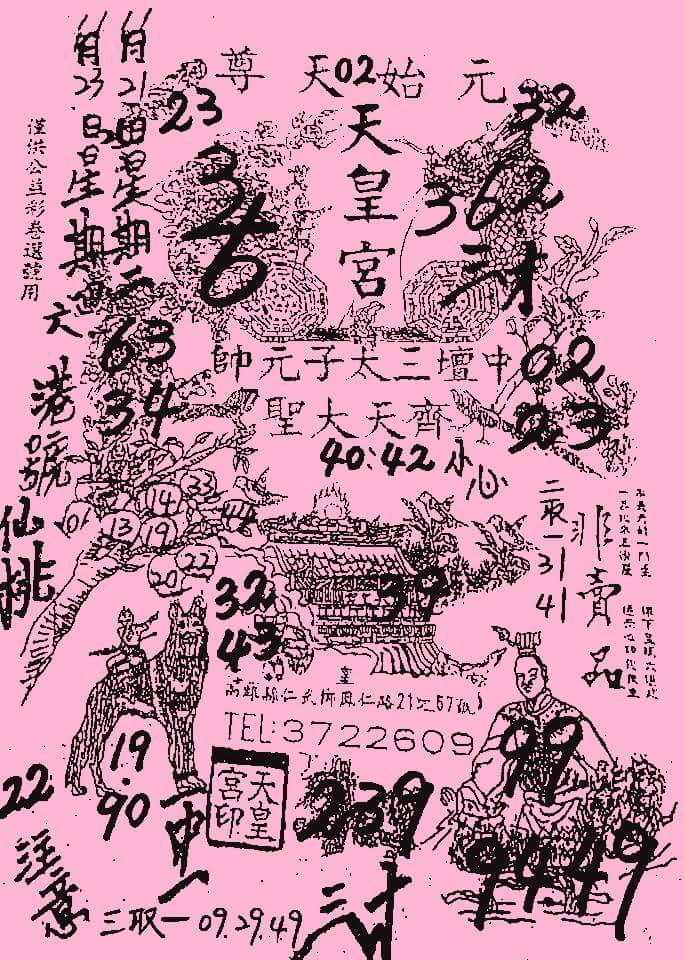 元始天尊
02
天皇宮
23
32
36
362
三才
月21日星期二
月23日星期六
僅供公益彩卷選號用
中壇三太子元帥
63
34
02
23
齊天大聖
40:42 小心
港號
仙桃
01 13 14 19 33 44
20 22
二取一
31
41
非賣品
32
43
39
高雄縣仁武鄉鳳仁路21之57號
TEL:3722609
19.90
22
注意
一中一
天皇宮印
239
99
9449
三取一 09.29.49
三才